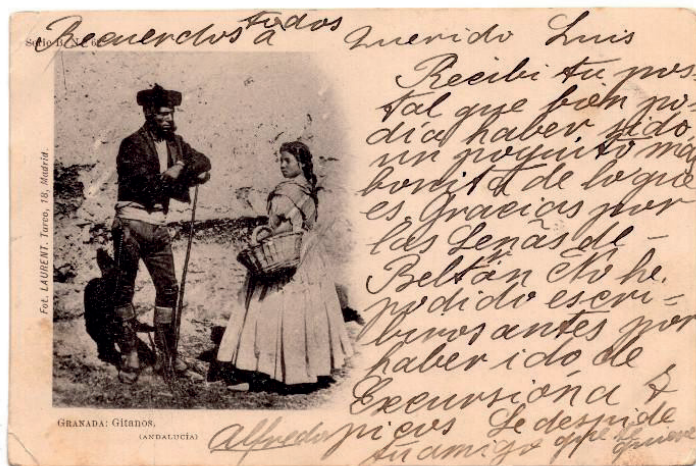 Serie B. N.º 6
Recuerdos a todos
Querido Luis
Recibi tu pos
tal que bien po
dia haber sido
un poquito mas
bonita de lo que
es. Gracias por
las señas de
Beltrán No he
podido escri-
biros antes por
haber ido de
Excursión a
picos Se despide
tu amigo que te quiere
Alfredo
Fot. LAURENT. Turco, 18, Madrid.
GRANADA: Gitanos,
(ANDALUCÍA)